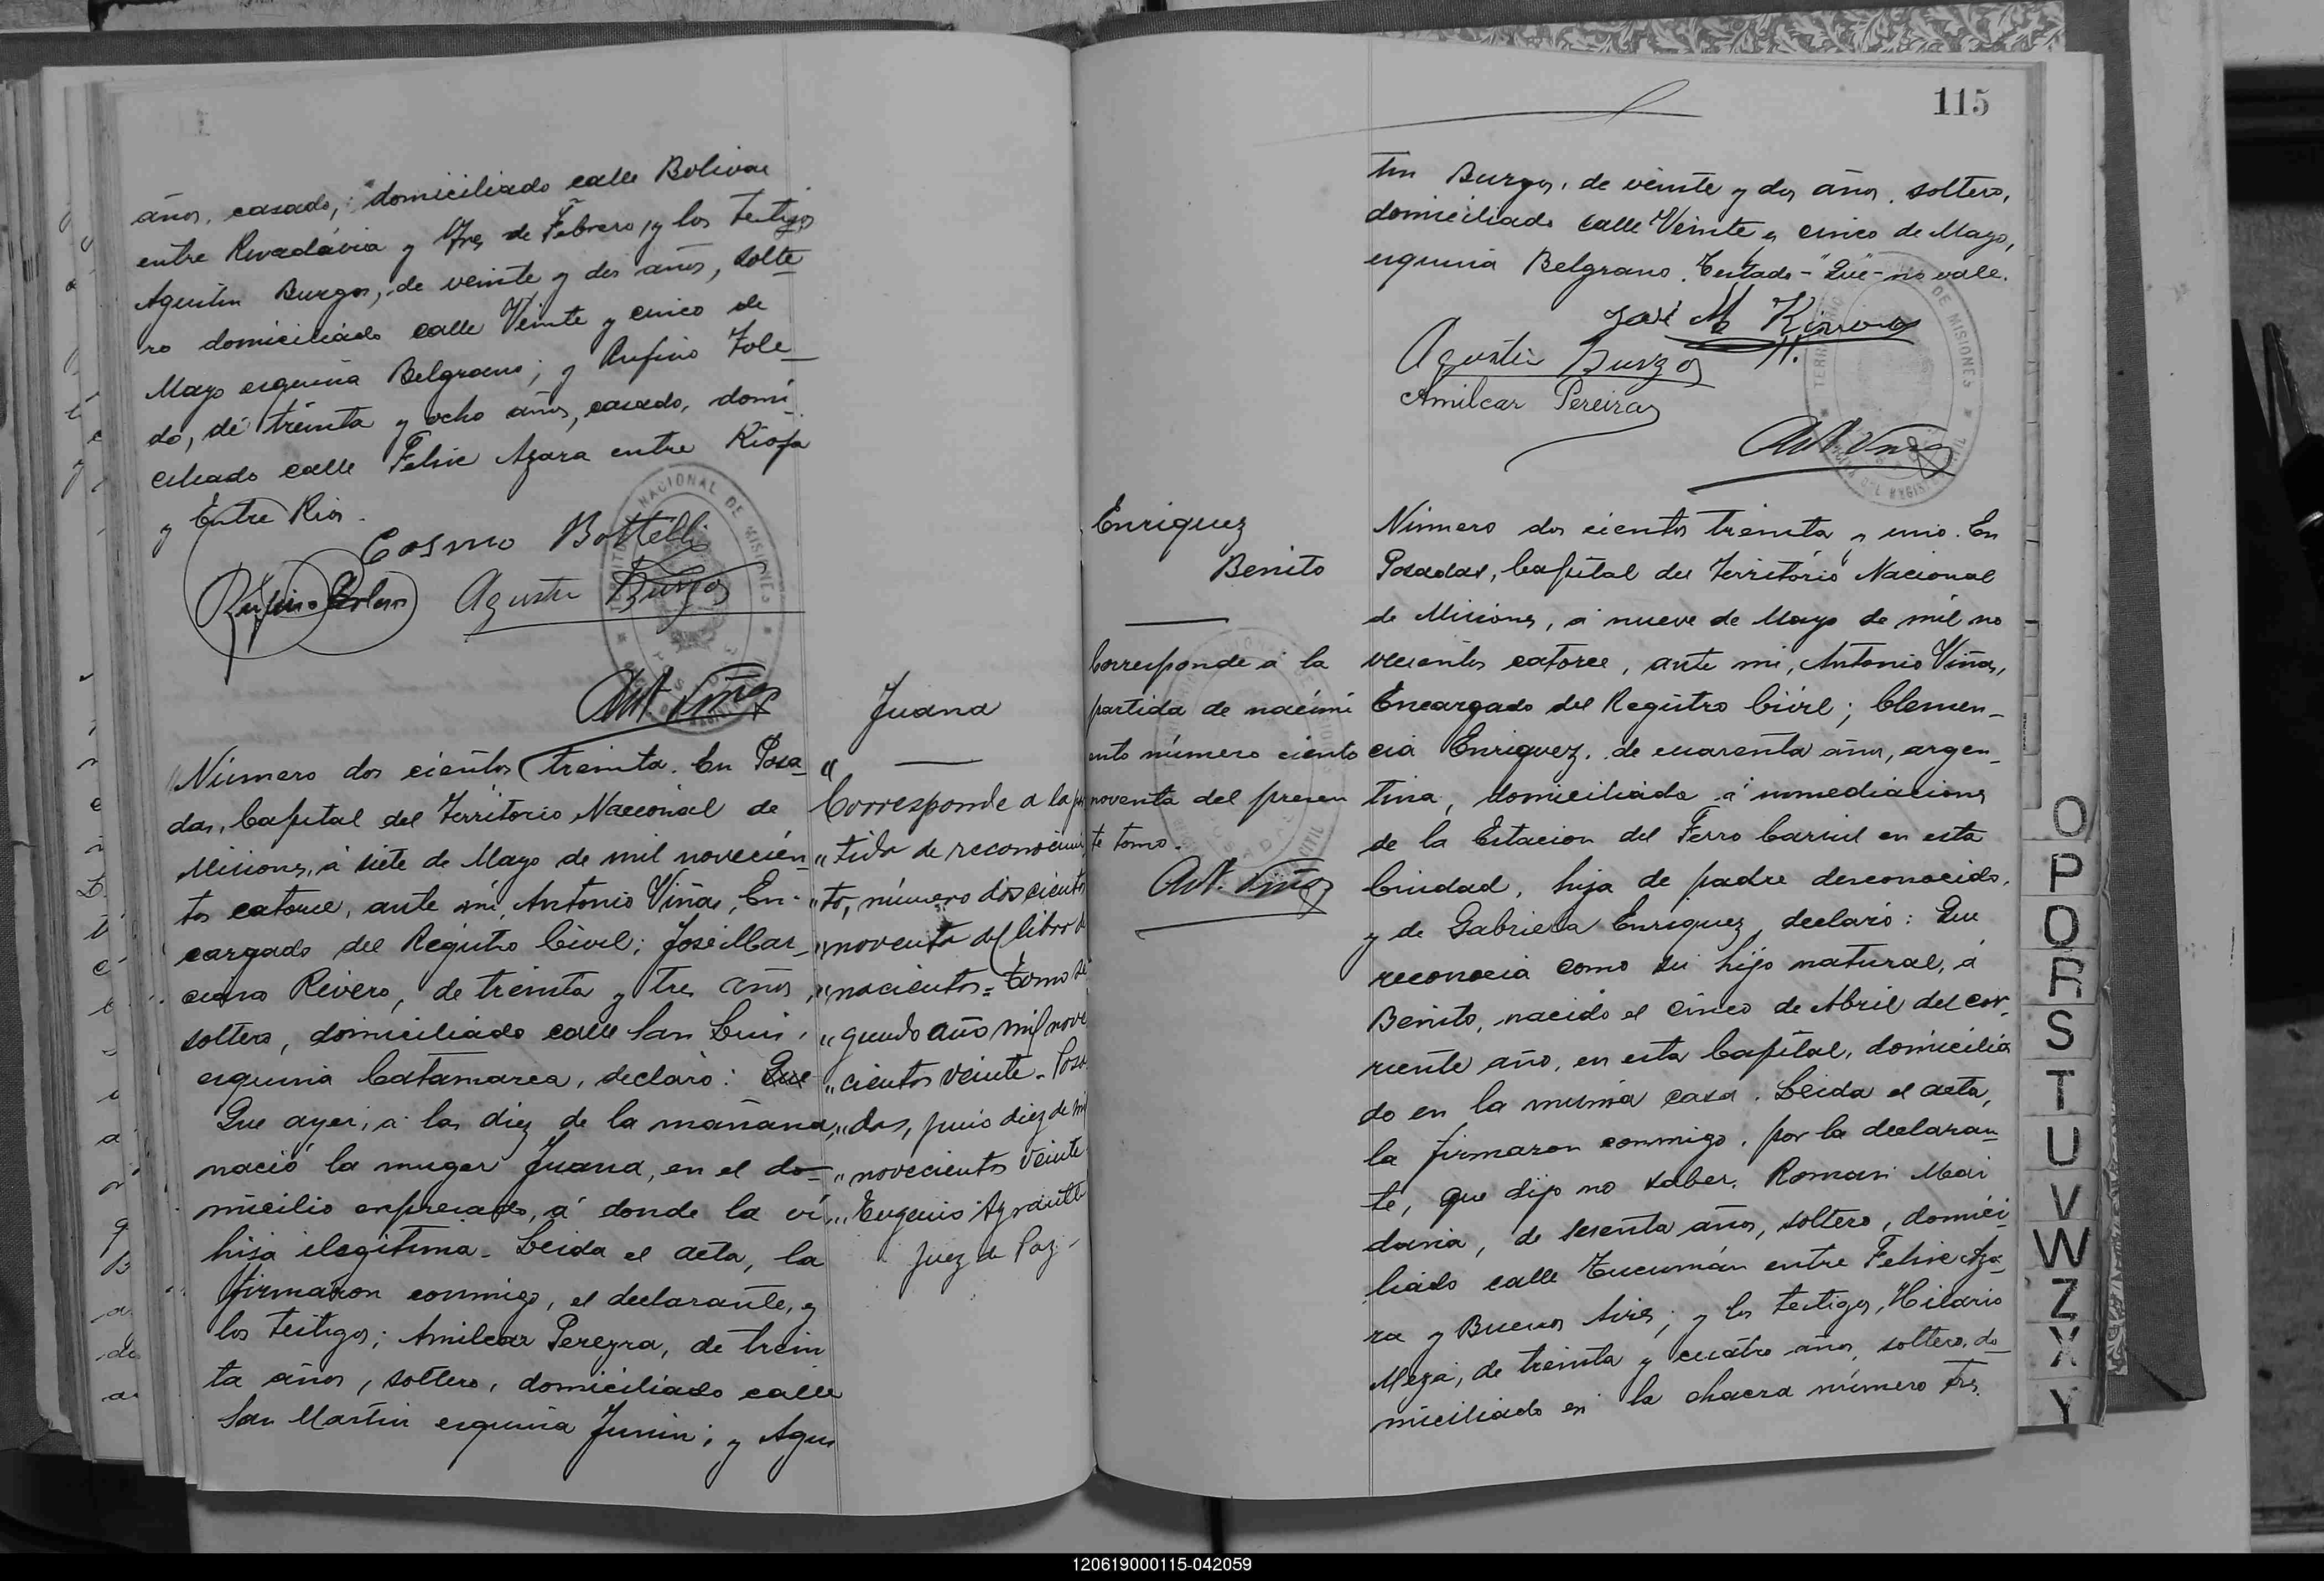 años, casado, domiciliado calle Bolivar
entre Rivadavia y Tres de Febrero, y los testigos
Agustin Burgos, de veinte y dos años, solte
ro domiciliado calle Veinte y cinco de
Mayo esquina Belgrano; y Rufino Tole
do, de treinta y ocho años, casado, domi
ciliado calle Felix Azara entre Rioja
y Entre Rios.
Cosmo Bottelli
Agustin Burgos
Ant. Viñas
Número dos cientos treinta. En Posa
das, Capital del Territorio Nacional de
Misiones, á siete de Mayo de mil novecien
tos catorce, ante mí, Antonio Viñas, En
cargado del Registro Civil; José Mar
ciano Rivero, de treinta y tres años,
soltero, domiciliado calle San Luis,
esquina Catamarca, declaró: Que
Que ayer, á las diez de la mañana,
nació la muger Juana, en el do
micilio expresado, á donde la ví
hija ilegitima. Leida el acta, la
firmaron conmigo, el declarante, y
los testigos; Amilcar Pereyra, de trein
ta años, soltero, domiciliado calle
San Martin esquina Junin; y Agus
Juana
Corresponde a la par
"tida de reconocimien
"to, número dos cientos
"noventa del libro de
"nacientos = Tomo se
"gundo año mil nove
"cientos veinte - Posa
"das, junio diez de mil
"novecientos veinte
"Eugenio
Juez de Paz -
115
tin Burgos, de veinte y dos años, soltero,
domiciliado calle Veinte y cinco de Mayo,
esquina Belgrano. Testado - "Que" - no vale.
José M. Rivero
Agustin Burgos
Amilcar Pereira
Ant. Viñas
Enriquez
Benito
Corresponde á la
partida de nacimi
ento número ciento
noventa del presen
te tomo.
Ant. Viñas
Número dos cientos treinta y uno. En
Posadas, Capital del Territorio Nacional
de Misiones, á nueve de Mayo de mil no
vecientos catorce, ante mi, Antonio Viñas,
Encargado del Registro Civil; Clemen
cia Enriquez, de cuarenta años, argen
tina, domiciliada á inmediaciones
de la Estacion del Ferro Carril en esta
Ciudad, hija de padre desconocido,
y de Gabriela Enriquez, declaró: Que
reconocia como su hijo natural, á
Benito, nacido el cinco de Abril del cor
riente año, en esta Capital, domicilia
do en la misma casa. Leida el acta,
la firmaron conmigo, por la declaran
te, que dijo no saber, Roman Mari
dania, de sesenta años, soltero, domici
liado calle Tucumán entre Felix Aza
ra y Buenos Aires; y los testigos, Hilario
Meza, de treinta y cuatro años, soltero, do
miciliado en la chacra número tres
O
P
Q
R
S
T
U
V
W
Z
X
Y
120619000115-042059